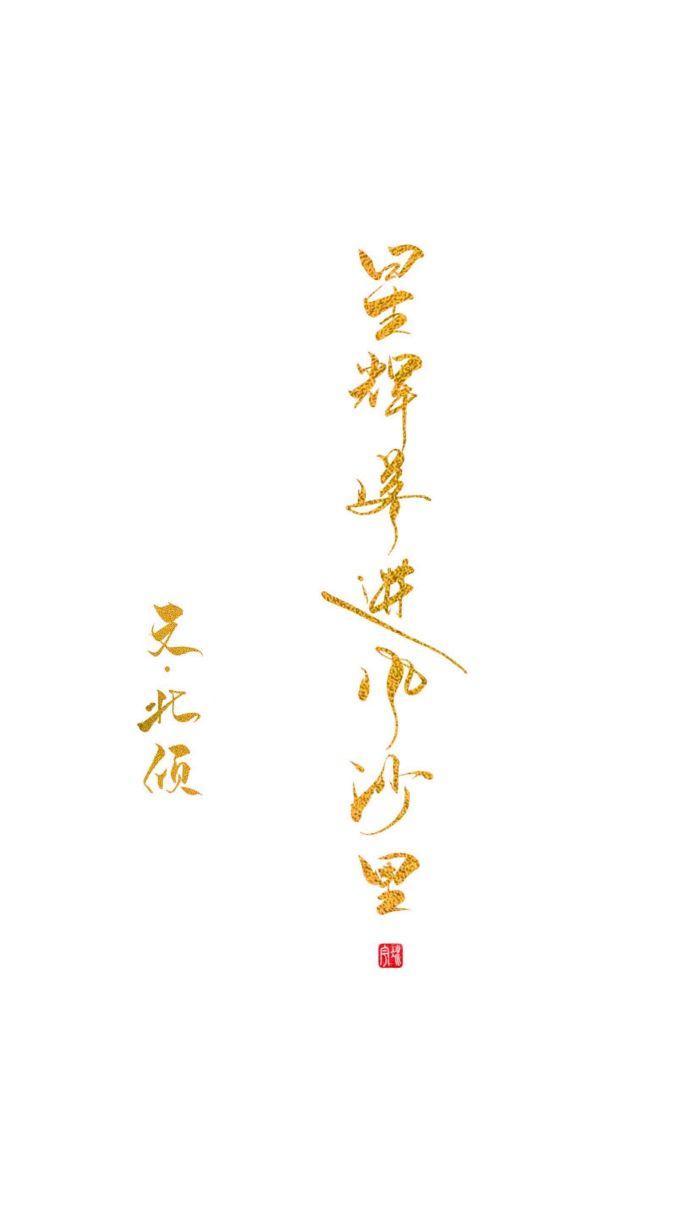 星辉落进风沙里
文·北倾